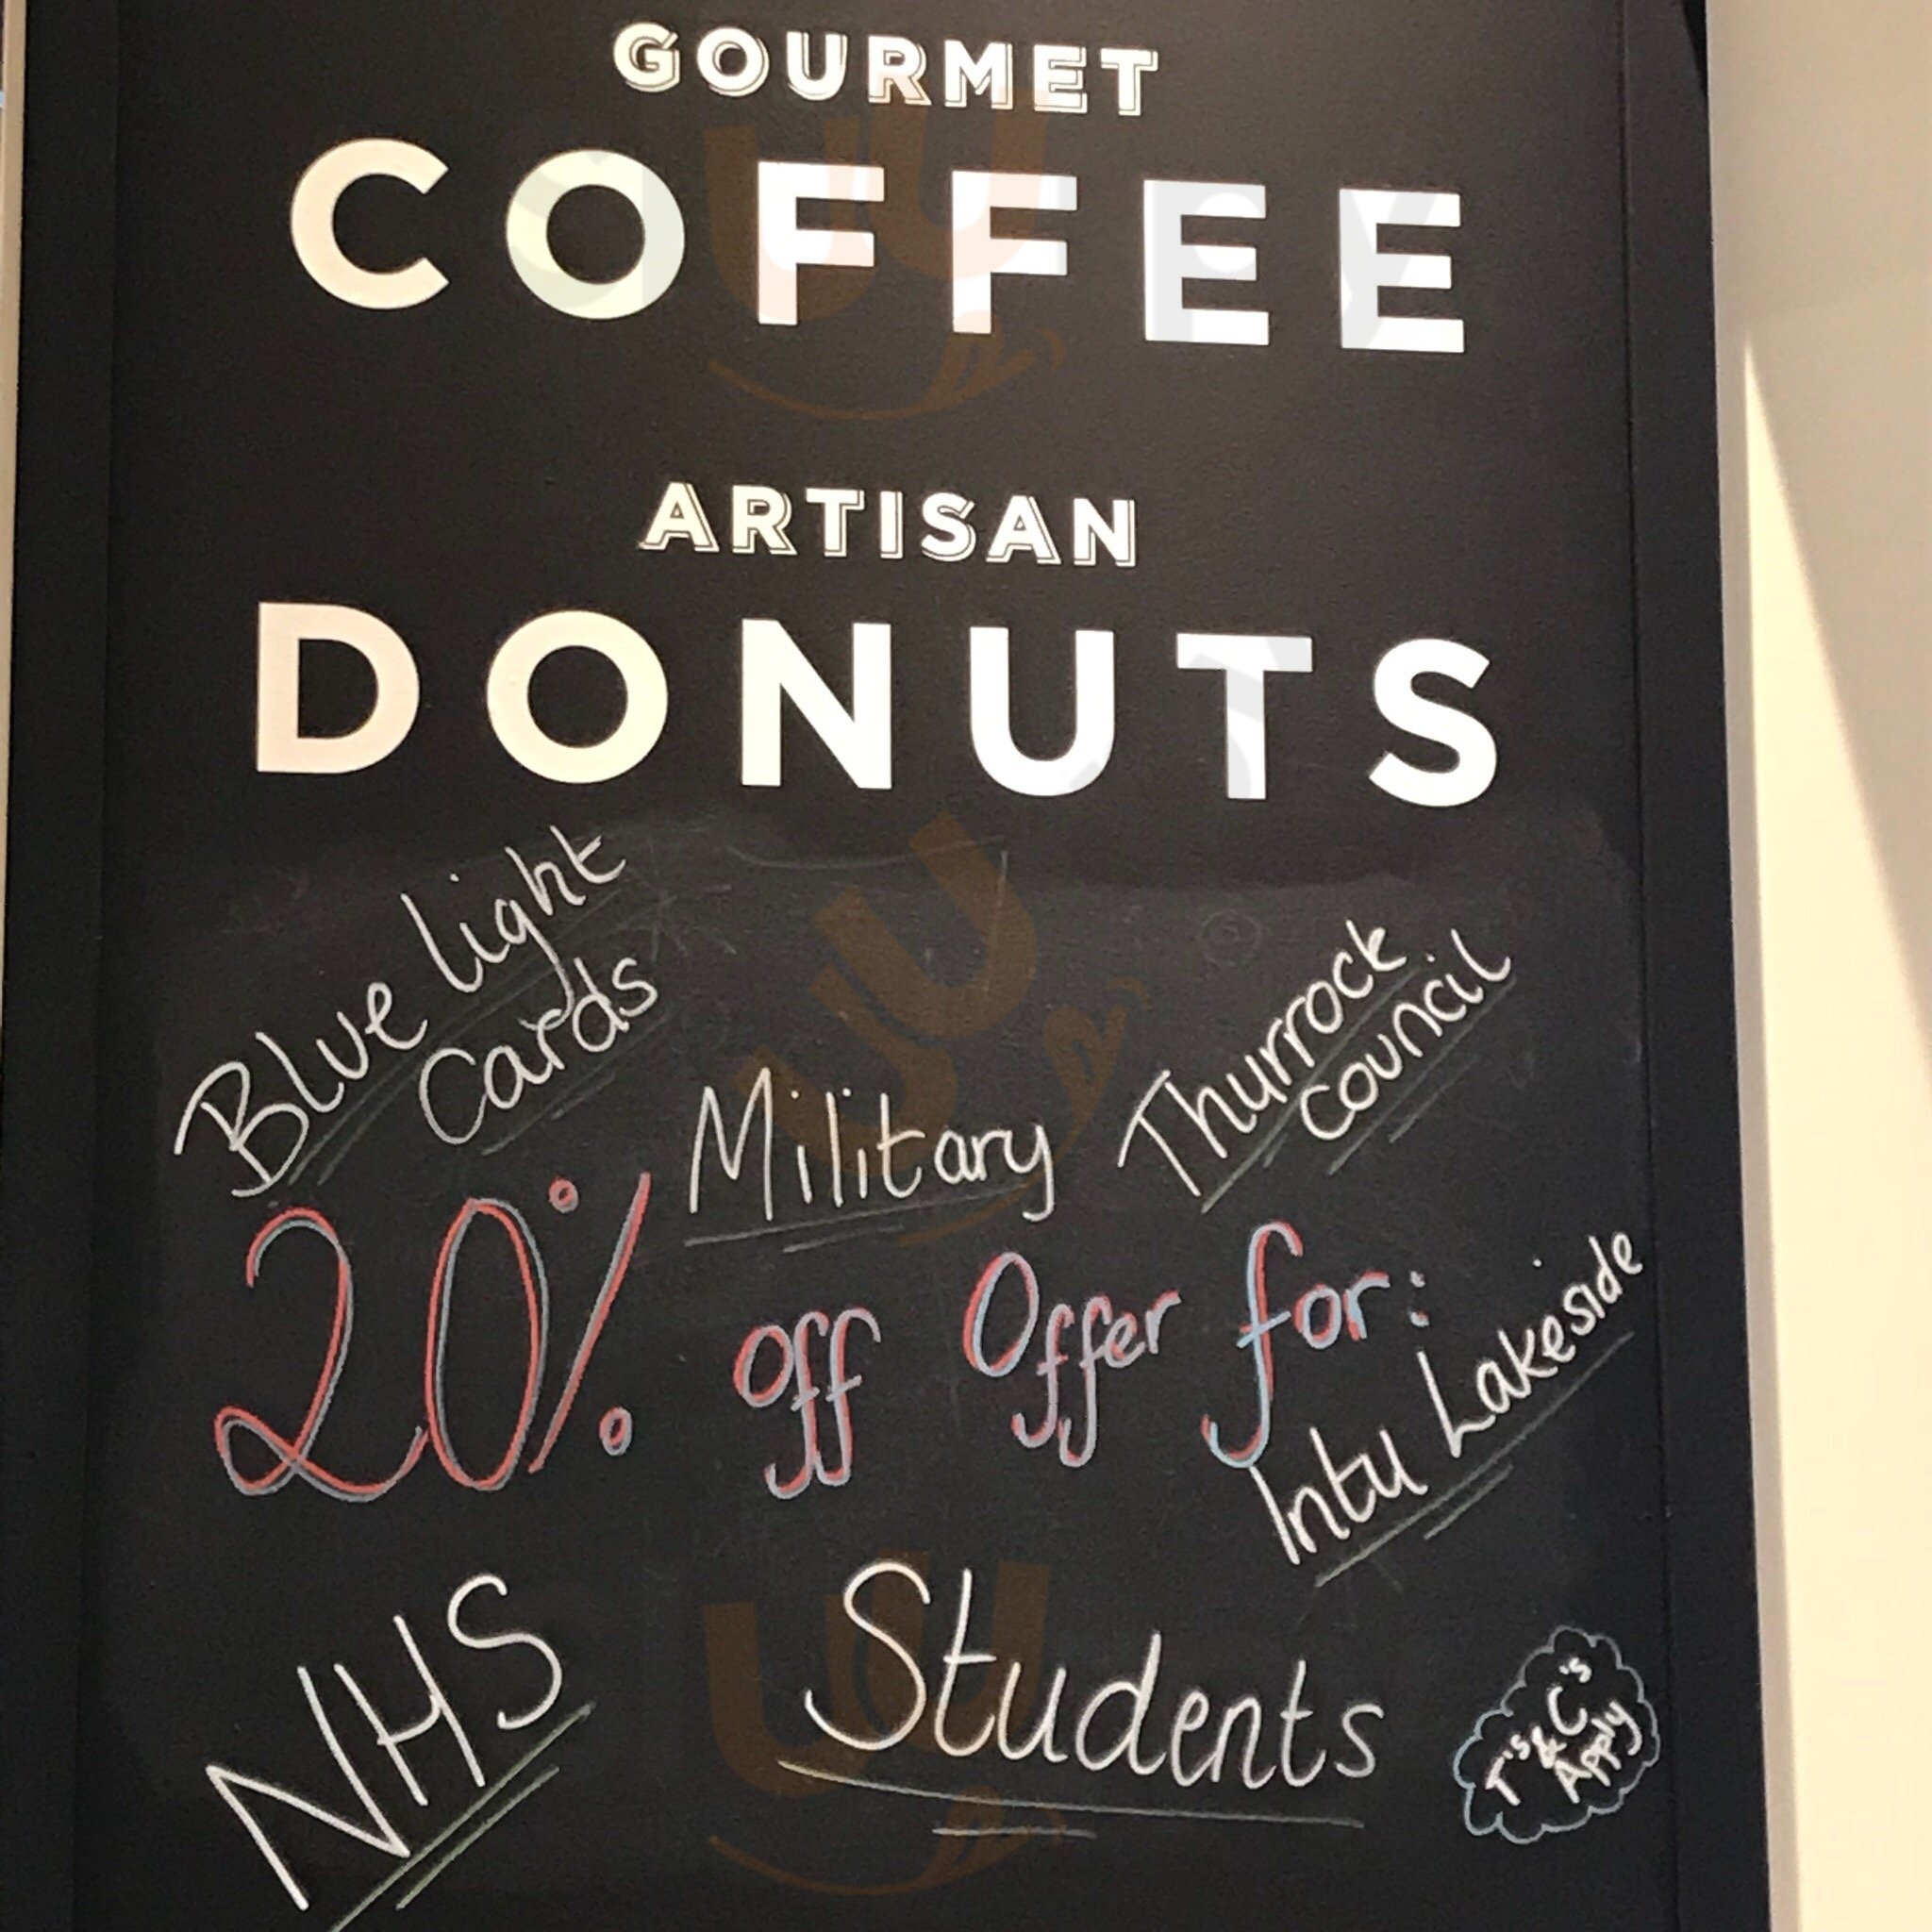 GOURMET
COFFEE
ARTISAN
DONUTS
Blue light
Cards
Military
Thurrock
Council
20% off Offer for:
Intu Lakeside
NHS
Students
T's & C's
Apply